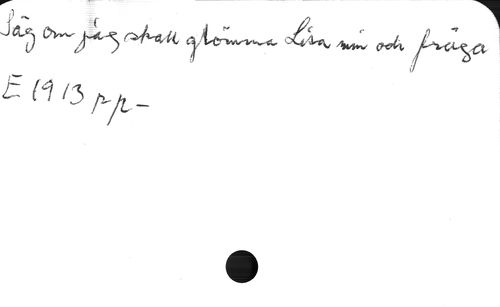 Säg om jag skall glömma Lisa min och fråga
E 1913 pp-